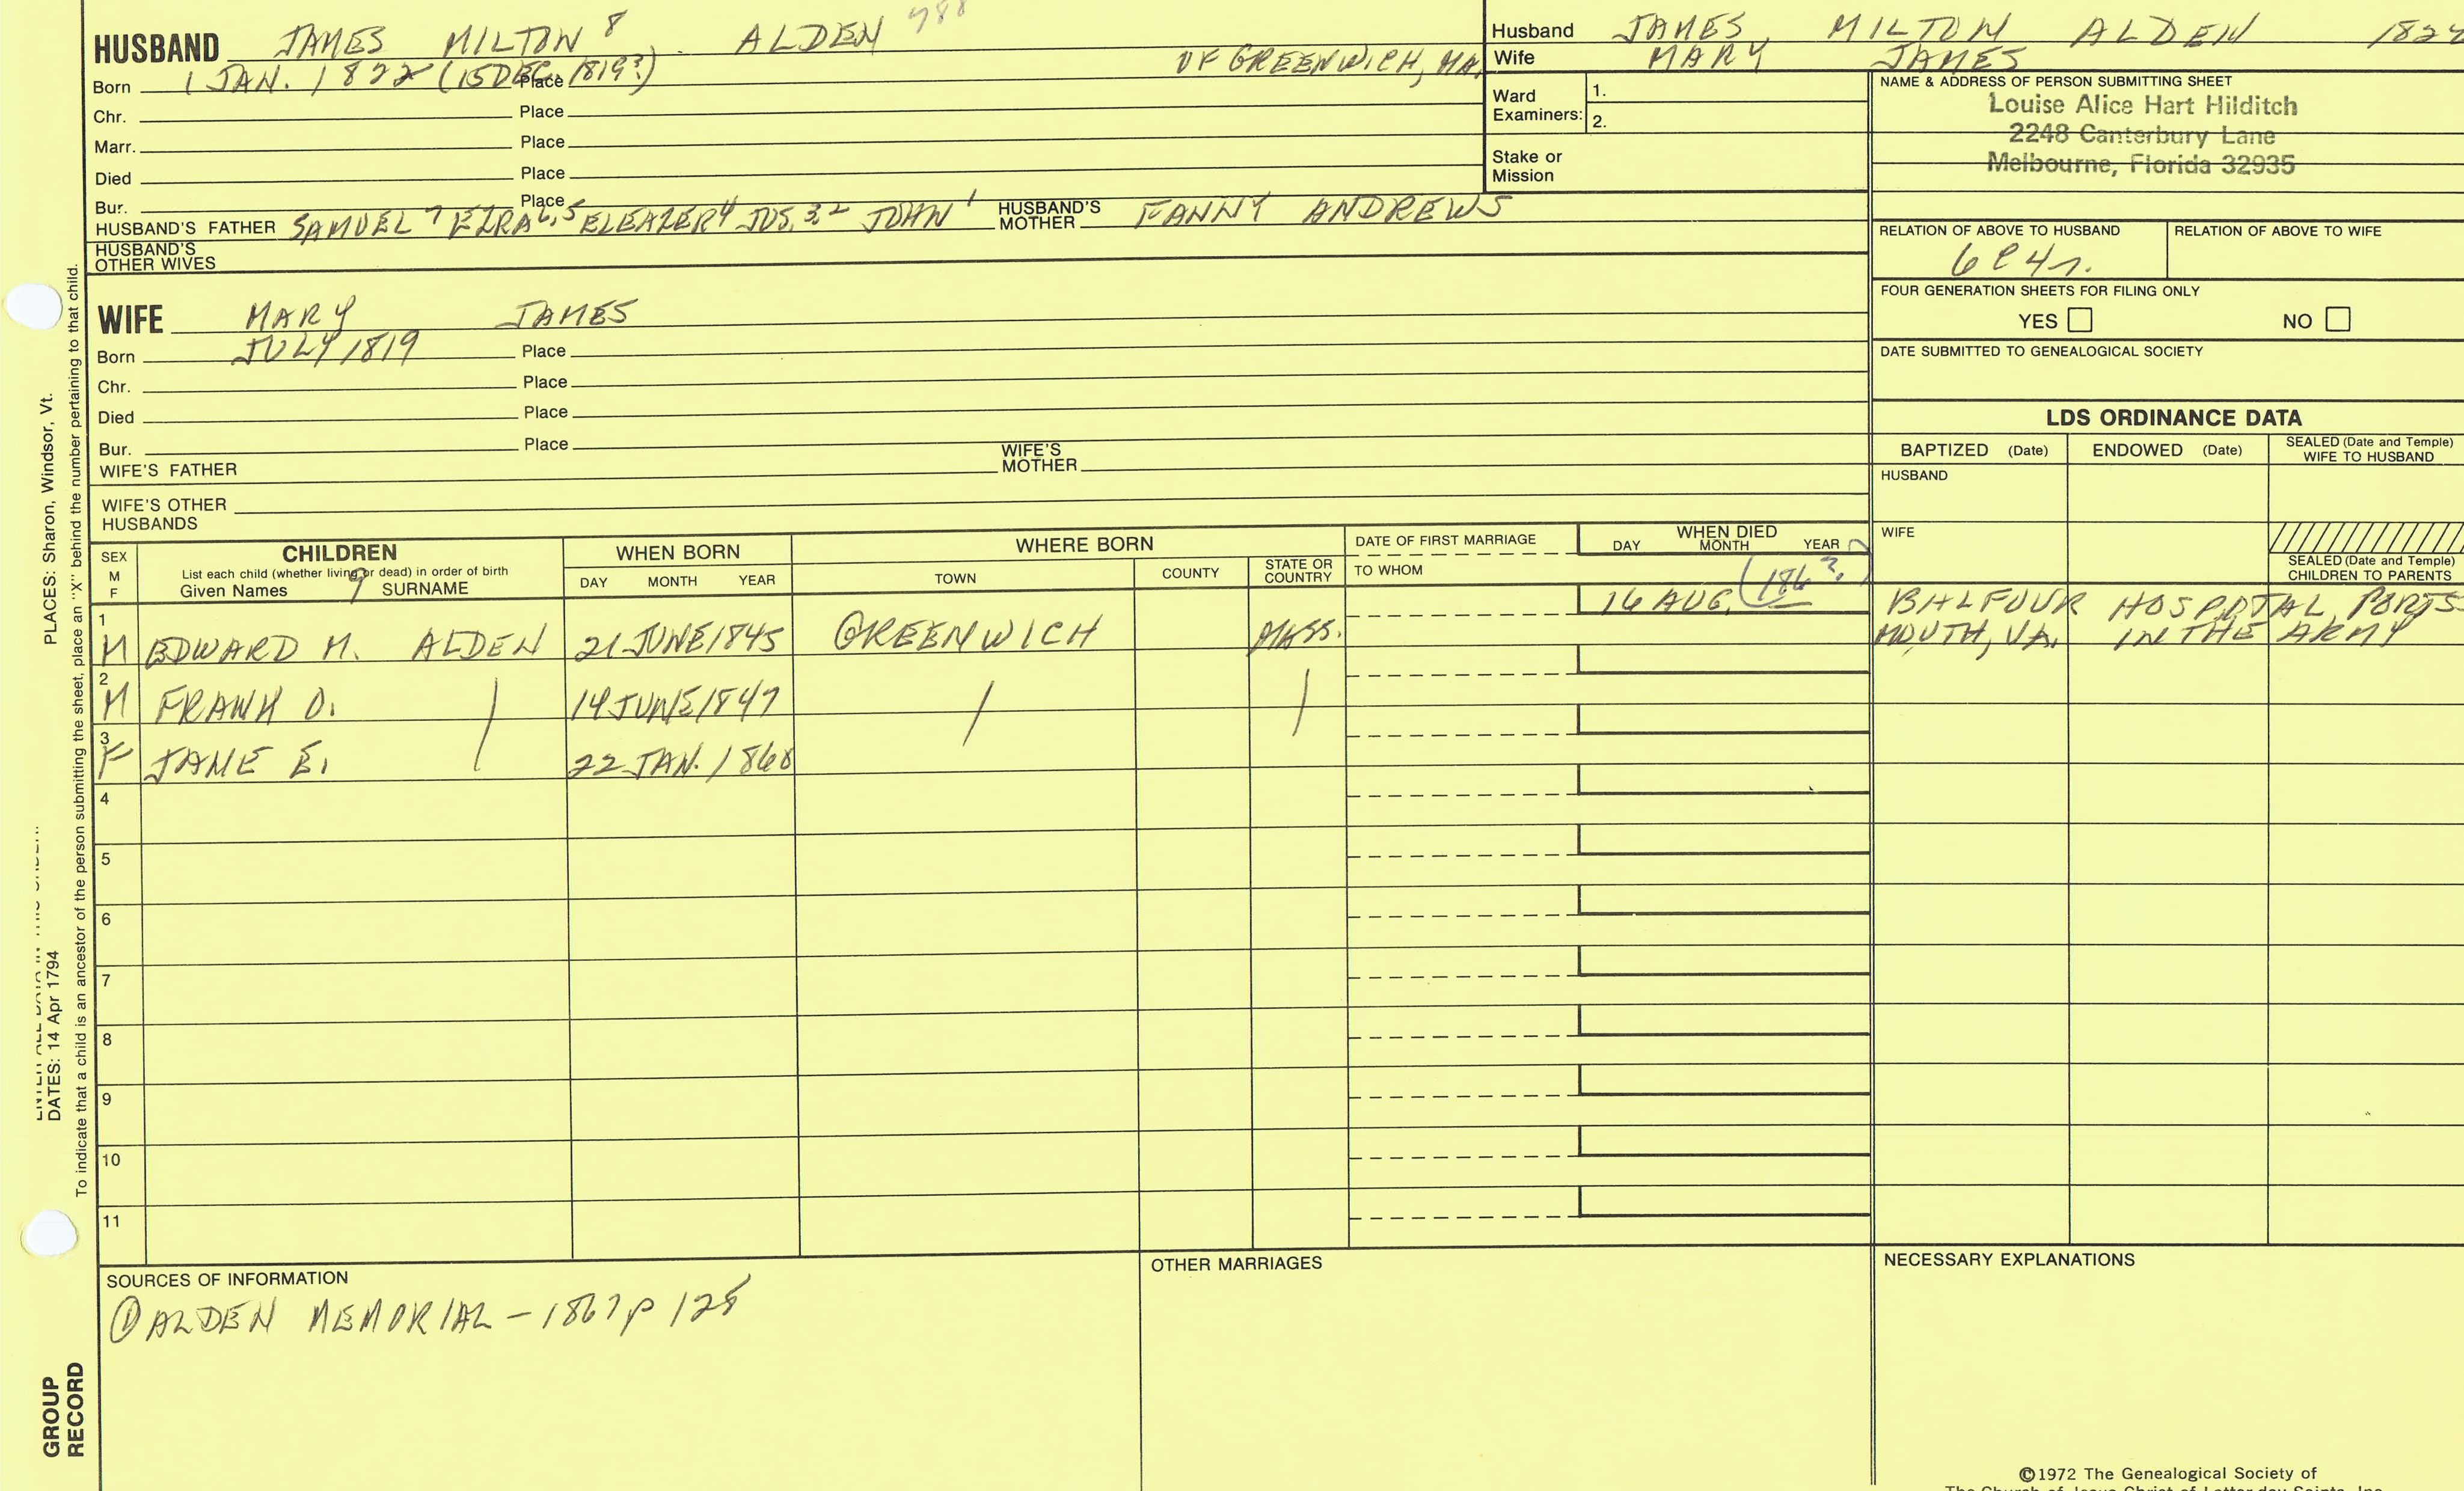 HUSBAND JAMES MILTON 8 ALDEN 788
OF GREENWICH, MA.
Born 1 JAN. 1822 (15 DEC. 1819?) Place
Chr. Place
Marr. Place
Died Place
Bur. Place
HUSBAND'S FATHER SAMUEL 7 EZRA 6,5 ELEAZER 4 JOS. 3,2 JOHN 1 HUSBAND'S MOTHER FANNY ANDREWS
HUSBAND'S OTHER WIVES
WIFE MARY JAMES
Born JULY 1819 Place
Chr. Place
Died Place
Bur. Place
WIFE'S FATHER WIFE'S MOTHER
WIFE'S OTHER HUSBANDS
Husband JAMES MILTON ALDEN 1822
Wife MARY JAMES
Ward Examiners: 1.
2.
Stake or Mission
NAME & ADDRESS OF PERSON SUBMITTING SHEET
Louise Alice Hart Hilditch
2248 Canterbury Lane
Melbourne, Florida 32935
RELATION OF ABOVE TO HUSBAND RELATION OF ABOVE TO WIFE
6C4r.
FOUR GENERATION SHEETS FOR FILING ONLY
YES NO
DATE SUBMITTED TO GENEALOGICAL SOCIETY
LDS ORDINANCE DATA
BAPTIZED (Date) ENDOWED (Date) SEALED (Date and Temple) WIFE TO HUSBAND
HUSBAND
WIFE
SEALED (Date and Temple) CHILDREN TO PARENTS
SEX M F
CHILDREN
List each child (whether living or dead) in order of birth
Given Names 9 SURNAME
WHEN BORN
DAY MONTH YEAR
WHERE BORN
TOWN COUNTY STATE OR COUNTRY
DATE OF FIRST MARRIAGE
TO WHOM
WHEN DIED
DAY MONTH YEAR
1 M EDWARD M. ALDEN 21 JUNE 1845 GREENWICH MASS. 16 AUG. (186?) BALFOUR HOSPITAL, PORTS
MOUTH, VA. IN THE ARMY
2 M FRANK O. 14 JUNE 1847
3 F JANE E. 22 JAN. 1860
4
5
6
7
8
9
10
11
SOURCES OF INFORMATION
① ALDEN MEMORIAL – 1867 p 128
OTHER MARRIAGES
NECESSARY EXPLANATIONS
©1972 The Genealogical Society of
The Church of Jesus Christ of Latter-day Saints, Inc.
PLACES: Sharon, Windsor, Vt.
DATES: 14 Apr 1794
To indicate that a child is an ancestor of the person submitting the sheet, place an "X" behind the number pertaining to that child.
GROUP
RECORD